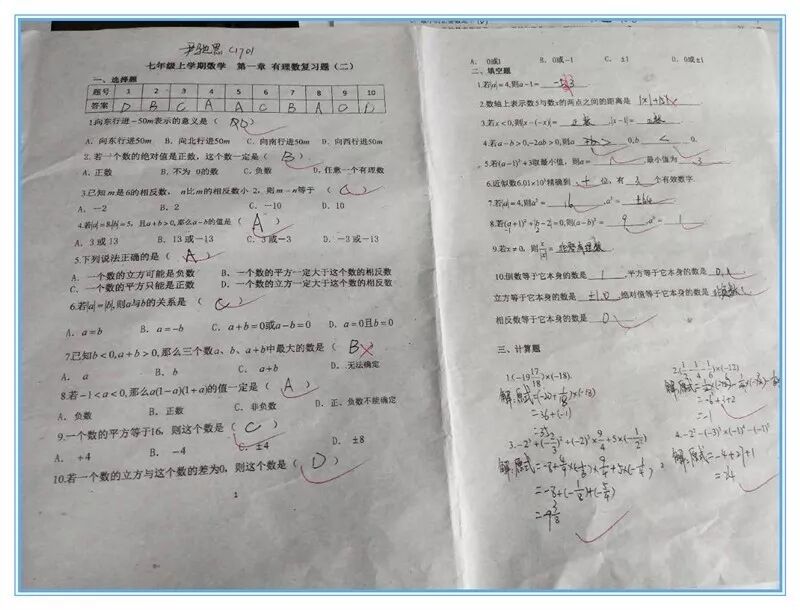 七年级上学期数学 第一章 有理数复习题（二）
一、选择题
题号 1 2 3 4 5 6 7 8 9 10
答案 D B C A A C B A C D
1.向东行进-50m表示的意义是（ D ）
A．向东行进50m B．向北行进50m C．向南行进50m D．向西行进50m
2.若一个数的绝对值是正数，这个数一定是（ B ）
A．正数 B．不为 0的数 C．负数 D．任意一个有理数
3.已知 m 是6的相反数， n比 m的相反数小 2，则 m－n等于（ C ）
A．－2 B．2 C．－10 D．10
4.若|a|=8,|b|=5，且a+b>0,那么a－b的值是（ A ）
A．3或13 B．13或－13 C．3或－3 D．－3或－13
5.下列说法正确的是（ A ）
A．一个数的立方可能是负数 B．一个数的平方一定大于这个数的相反数
C．一个数的平方只能是正数 D．一个数的立方一定大于这个数的相反数
6.若|a|=|b|,则a与b的关系是（ C ）
A．a=b B．a=－b C．a+b=0或a－b=0 D．a=0且b=0
7.已知b<0,a+b>0,那么三个数a、b、a+b中最大的数是（ B ）
A．a B．b C．a+b D．无法确定
8.若－1<a<0,那么a(1－a)(1+a)的值一定是（ A ）
A．负数 B．正数 C．非负数 D．正、负数不能确定
9.一个数的平方等于16，则这个数是（ C ）
A．+4 B．－4 C．±4 D．±8
10.若一个数的立方与这个数的差为0，则这个数是（ D ）
1
A．0或1 B．0或－1 C．±1 D．0或±1
二、填空题
1.若|a|=4,则a－1=
2.数轴上表示数5与数x的两点之间的距离是
3.若x<0,则|x－(－x)|= 正数 ,|x－1|= 正数
4.若a－b>0,－2ab>0,则a > 0,b < 0.
5.若(a－1)²+3取最小值，则a= ,最小值为 3
6.近似数6.01×10³精确到 十 位，有 3 个有效数字.
7.若|a|=4,则a²= 16 ,a³= ±64
8.若(a+1)²+|b－2|=0,则(a－b)²= 9 ,a²= 1
9.若x≠0，则
10.倒数等于它本身的数是 1 ,平方等于它本身的数是 0,1
立方等于它本身的数是 ±1,0 ,绝对值等于它本身的数是
相反数等于它本身的数是 0
三、计算题
1.(－19 17/18)×(－18).
解:原式=(－20+1/18)×(－18)
=36+(－1)
2.(1/2－1/4－1/6)×(－12)
解:原式=
=－6+3+2
=－1
3.－2²+(－2/3)²+(－2)³×9/4+5×(－1/2)
解:原式=
=－8+(－1/8)+(－5/4)
4.－2²－(－3)³×(－1)⁴－(－1)⁵
解:原式=－4+27+1
=24